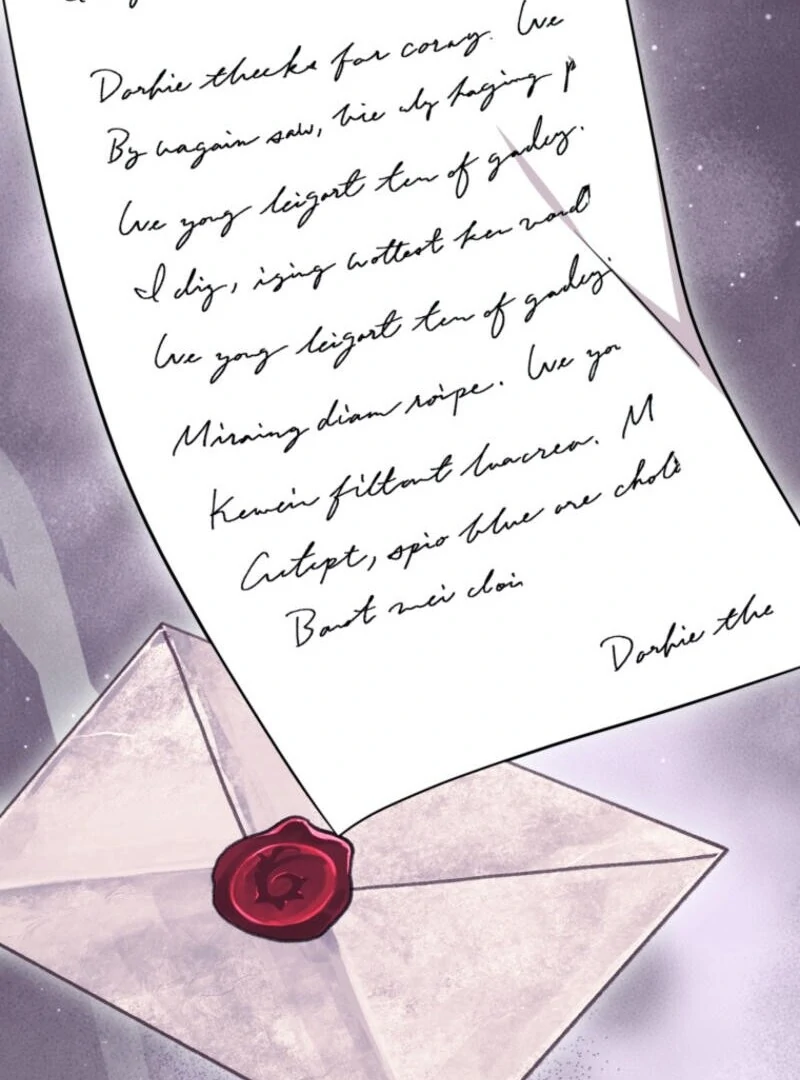 Dorhie theeks for coray. We
By wagain saw, hie uly haging p
We yong leigart ten of gadey.
I dig, iging wottest ken word
We yong leigart ten of gadey.
Miraing diam roipe. We yor
Kewein filtont luacrea. M
Cutept, spio blue are chole
Barot mei cloin
Dorhie the